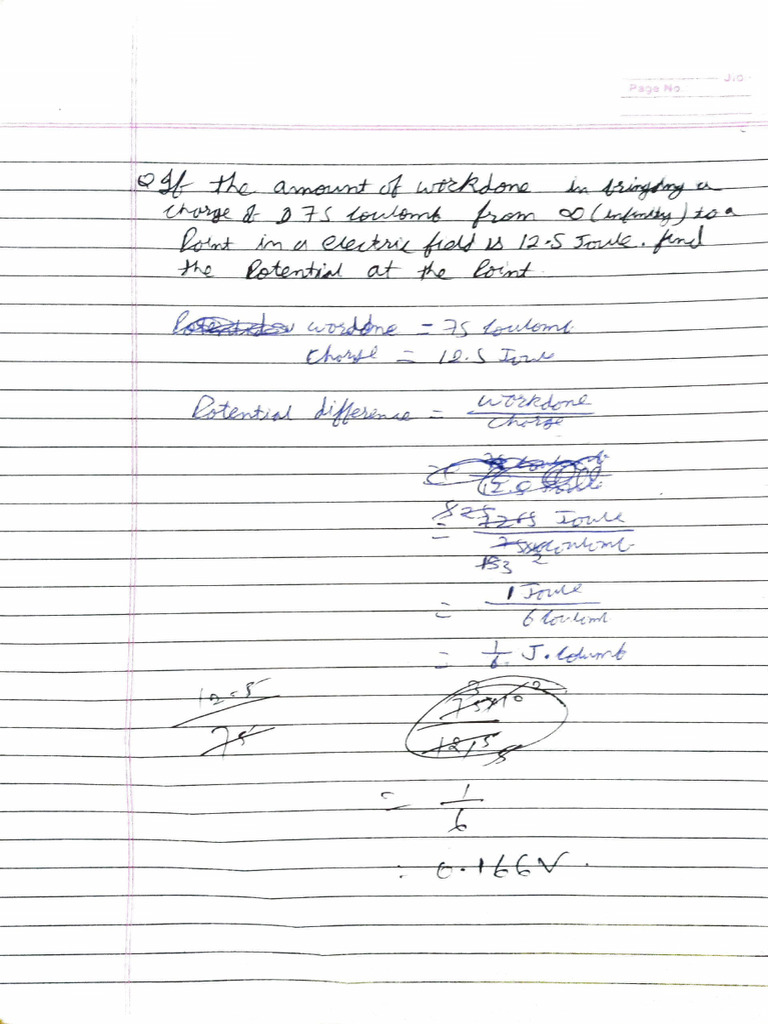 J.O
Page No.
Q If the amount of workdone in bringing a
charge of 75 Coulomb from ∞ (infinity) to a
Point in a electric field is 12.5 Joule. find
the Potential at the Point.
workdone = 75 Coulomb
Charge = 12.5 Joule
Potential difference = workdone
Charge
=
Joule
Coulomb
= 1 Joule
6 Coulomb
= 1/6 J.Columb
12.5
75
= 1
6
= 0.166V.